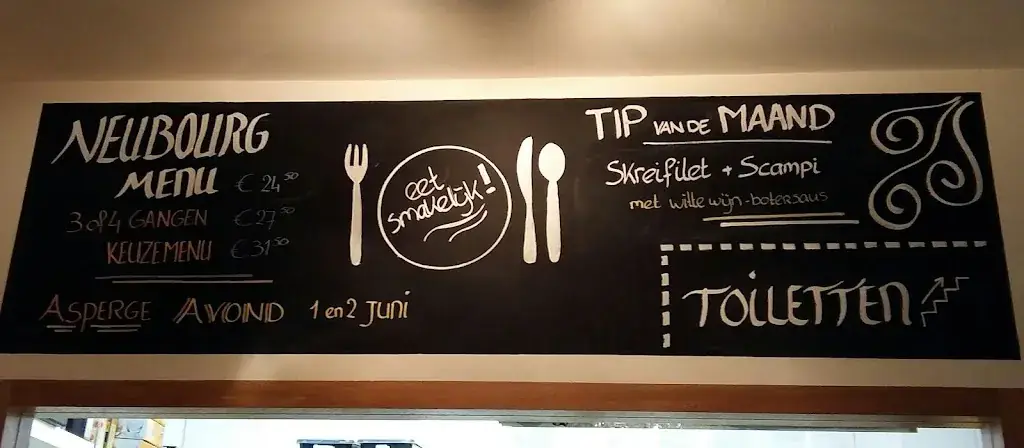 NEUBOURG
MENU € 24,50
3 of 4 GANGEN € 27,50
KEUZEMENU € 31,50
ASPERGE AVOND 1 en 2 Juni
eet
smakelijk!
TIP VAN DE MAAND
Skreifilet + Scampi
met witte wijn-botersaus
TOILETTEN